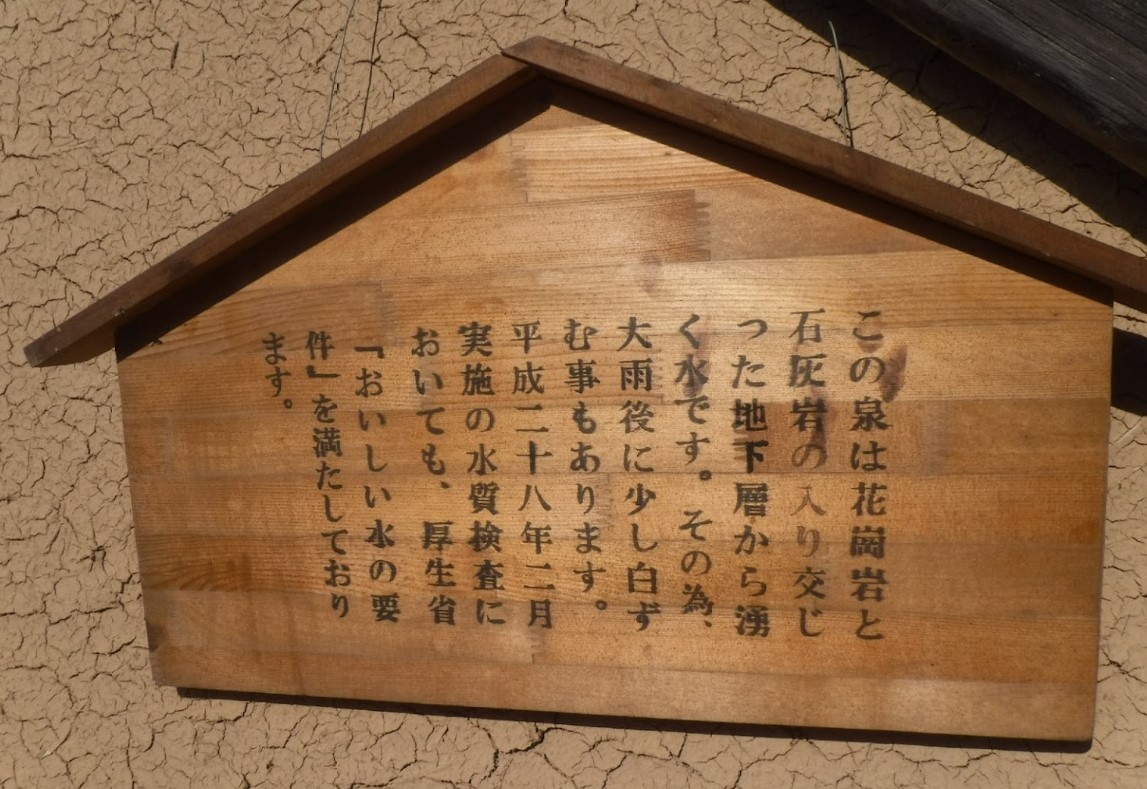 この泉は花崗岩と
石灰岩の入り交じ
った地下層から湧
く水です。その為、
大雨後に少し白ず
む事もあります。
平成二十八年二月
実施の水質検査に
おいても、厚生省
『おいしい水の要
件』を満たしており
ます。